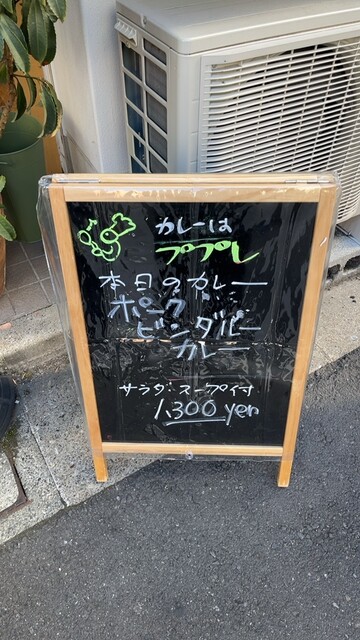 カレーは
ププレ
本日のカレー
ポーク
ビンダバー
カレー
サラダ・スープ付
1,300 yen